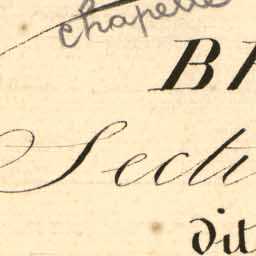 chapelle
Secti
dit